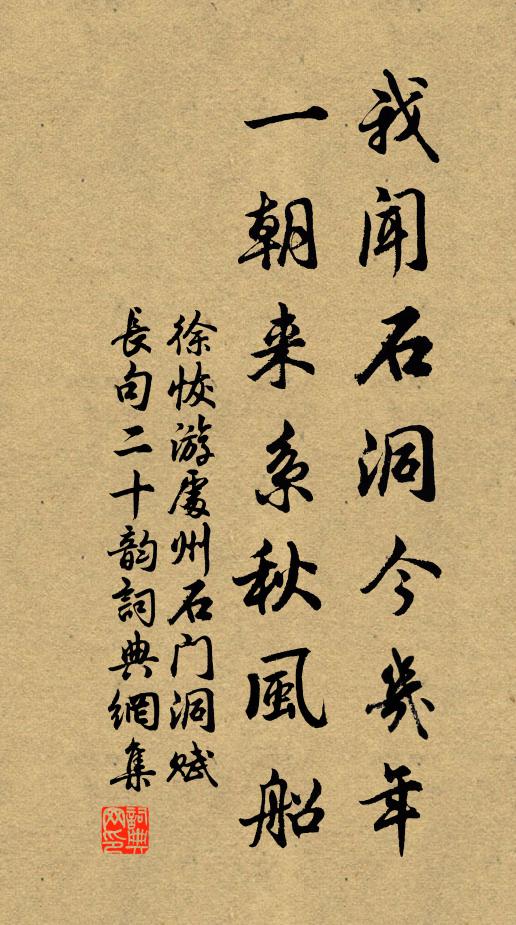 我闻石洞今几年
一朝来系秋風船
徐恢游處州石门洞赋
長句二十韵詞典網集
詞典网印